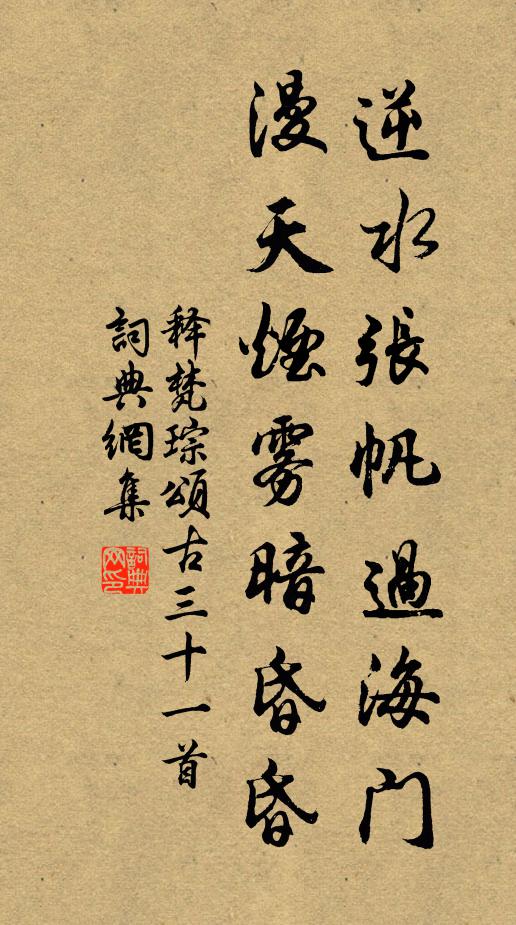 逆水張帆過海门
漫天煙雾暗昏昏
释梵琮頌古三十一首
詞典網集
詞典网印